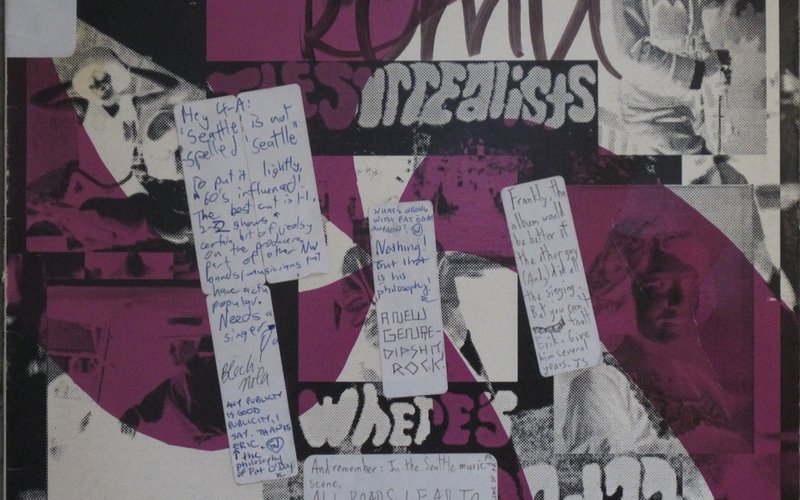 THE SURREALISTS
Hey 4-A:
'Seattle' is not
spelled 'Seattle'
To put it lightly,
60's influenced!
The best cut is 1-1.
2-2 shows a
certain bit of
on the producers
part of other NW
bands/musicians
have a
Needs a
singer
Blech
nola
ANY PUBLICITY
IS GOOD
PUBLICITY, I
SAY. THANKS
ERIC.
↑ the
philosophy
of Pat O'Day
WHAT'S WRONG
WITH PAT O'DAY
ANYHOW?
Nothing!
but that
is his
philosophy!
A NEW
GENRE-
DIPSHIT
ROCK.
Frankly, the
album would
be better if
the other guy
(Andy) did all
the singing.
But you can't
fault
Erik. Give
him several
years. JS
WHERE'S
And remember: In the Seattle music
scene,
ALL ROADS LEAD TO